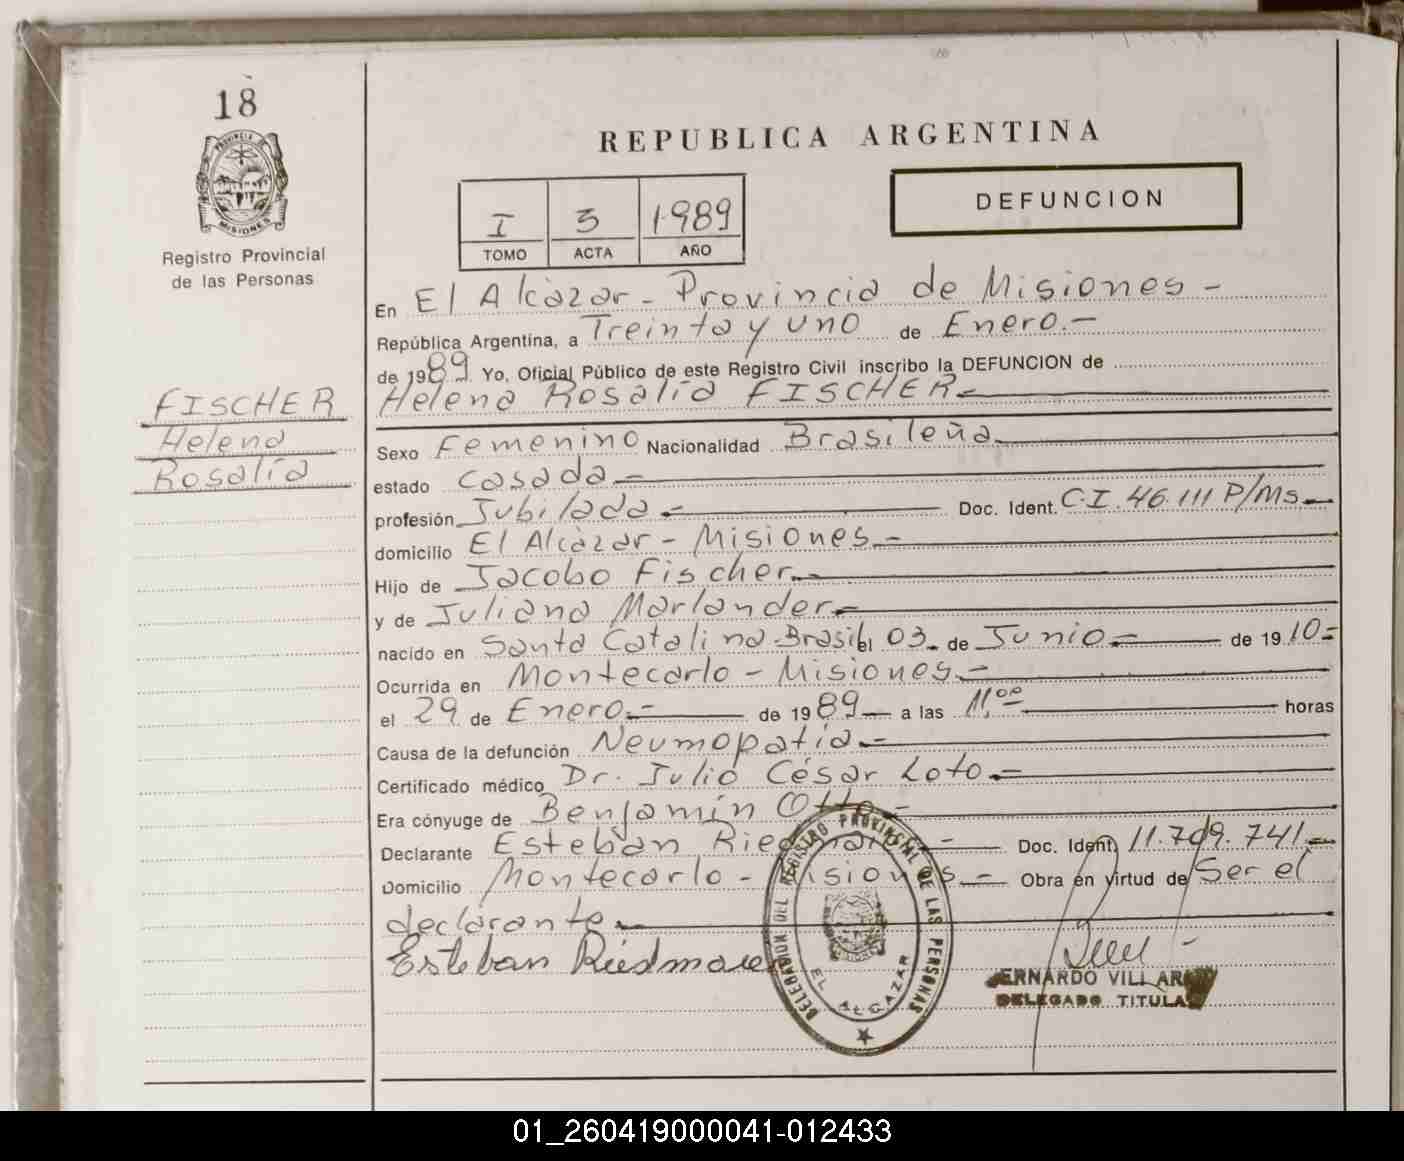 18
PROVINCIA DE
MISIONES
Registro Provincial
de las Personas
FISCHER
Helena
Rosalía
REPUBLICA ARGENTINA
DEFUNCION
I 3 1989
TOMO ACTA AÑO
En El Alcázar - Provincia de Misiones -
República Argentina, a Treinta y uno de Enero.-
de 1989. Yo, Oficial Público de este Registro Civil inscribo la DEFUNCION de
Helena Rosalía FISCHER.-
Sexo Femenino Nacionalidad Brasileña.-
estado casada.-
profesión Jubilada.- Doc. Ident. C.I. 46.111 P/Ms.-
domicilio El Alcázar - Misiones.-
Hijo de Jacobo Fischer.-
y de Juliana Marlander.-
nacido en Santa Catalina-Brasil el 03.- de Junio.- de 1910-
Ocurrida en Montecarlo - Misiones.-
el 29 de Enero.- de 1989 - a las 11,00 horas
Causa de la defunción Neumopatía.-
Certificado médico Dr. Julio César Loto.-
Era cónyuge de Benjamín Otto.-
Declarante Esteban - Doc. Ident. 11.709.741.-
Domicilio Montecarlo - Misiones.- Obra en virtud de Ser el
declarante.-
Esteban
DELEGACION DEL REGISTRO PROVINCIAL DE LAS PERSONAS
EL ALCAZAR
BERNARDO VILLAR
DELEGADO TITULAR
01_260419000041-012433